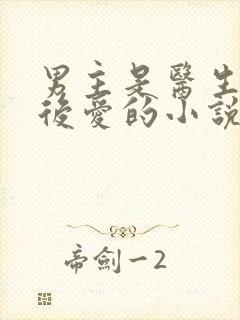 男主是醫生
後愛的小說
帝劍一2